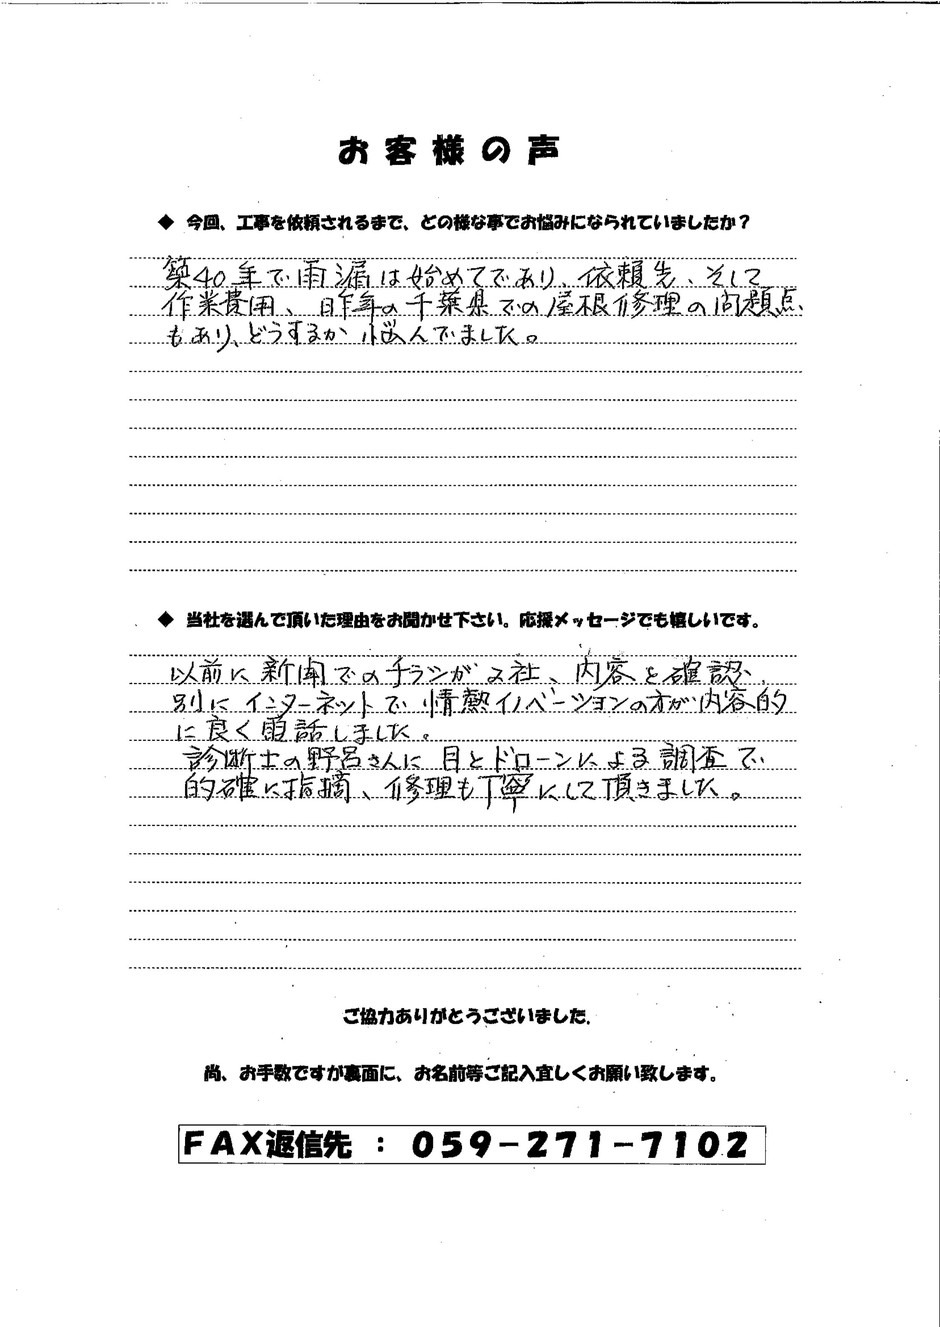 お客様の声
◆ 今回、工事を依頼されるまで、どの様な事でお悩みになられていましたか？
築40年で雨漏は始めてであり、依頼先、そして
作業費用、昨年の千葉県での屋根修理の問題点
もあり、どうするか悩んでました。
◆ 当社を選んで頂いた理由をお聞かせ下さい。応援メッセージでも嬉しいです。
以前に新聞でのチラシが2社、内容を確認、
別にインターネットで情熱イノベーションの方が内容的
に良く電話しました。
診断士の野呂さんに目とドローンによる調査で
的確に指摘、修理も丁寧にして頂きました。
ご協力ありがとうございました。
尚、お手数ですが裏面に、お名前等ご記入宜しくお願い致します。
FAX返信先 : 059-271-7102